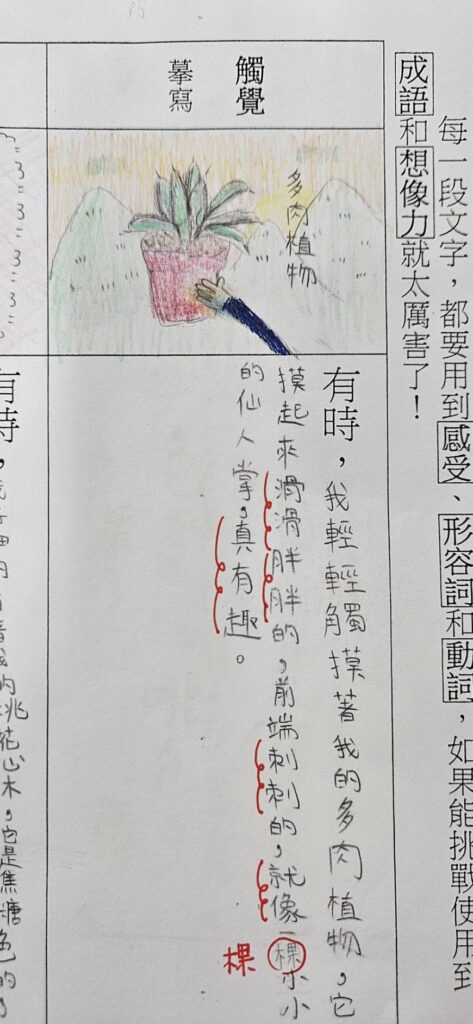 每一段文字，都要用到感受、形容詞和動詞，如果能挑戰使用到
成語和想像力就太厲害了！
觸覺
摹寫
多肉植物
有時，我輕輕觸摸著我的多肉植物，它
摸起來滑滑胖胖的，前端刺刺的，就像一棵小小
棵
的仙人掌，真有趣。
有時，
桃花心木，它是焦糖色的，